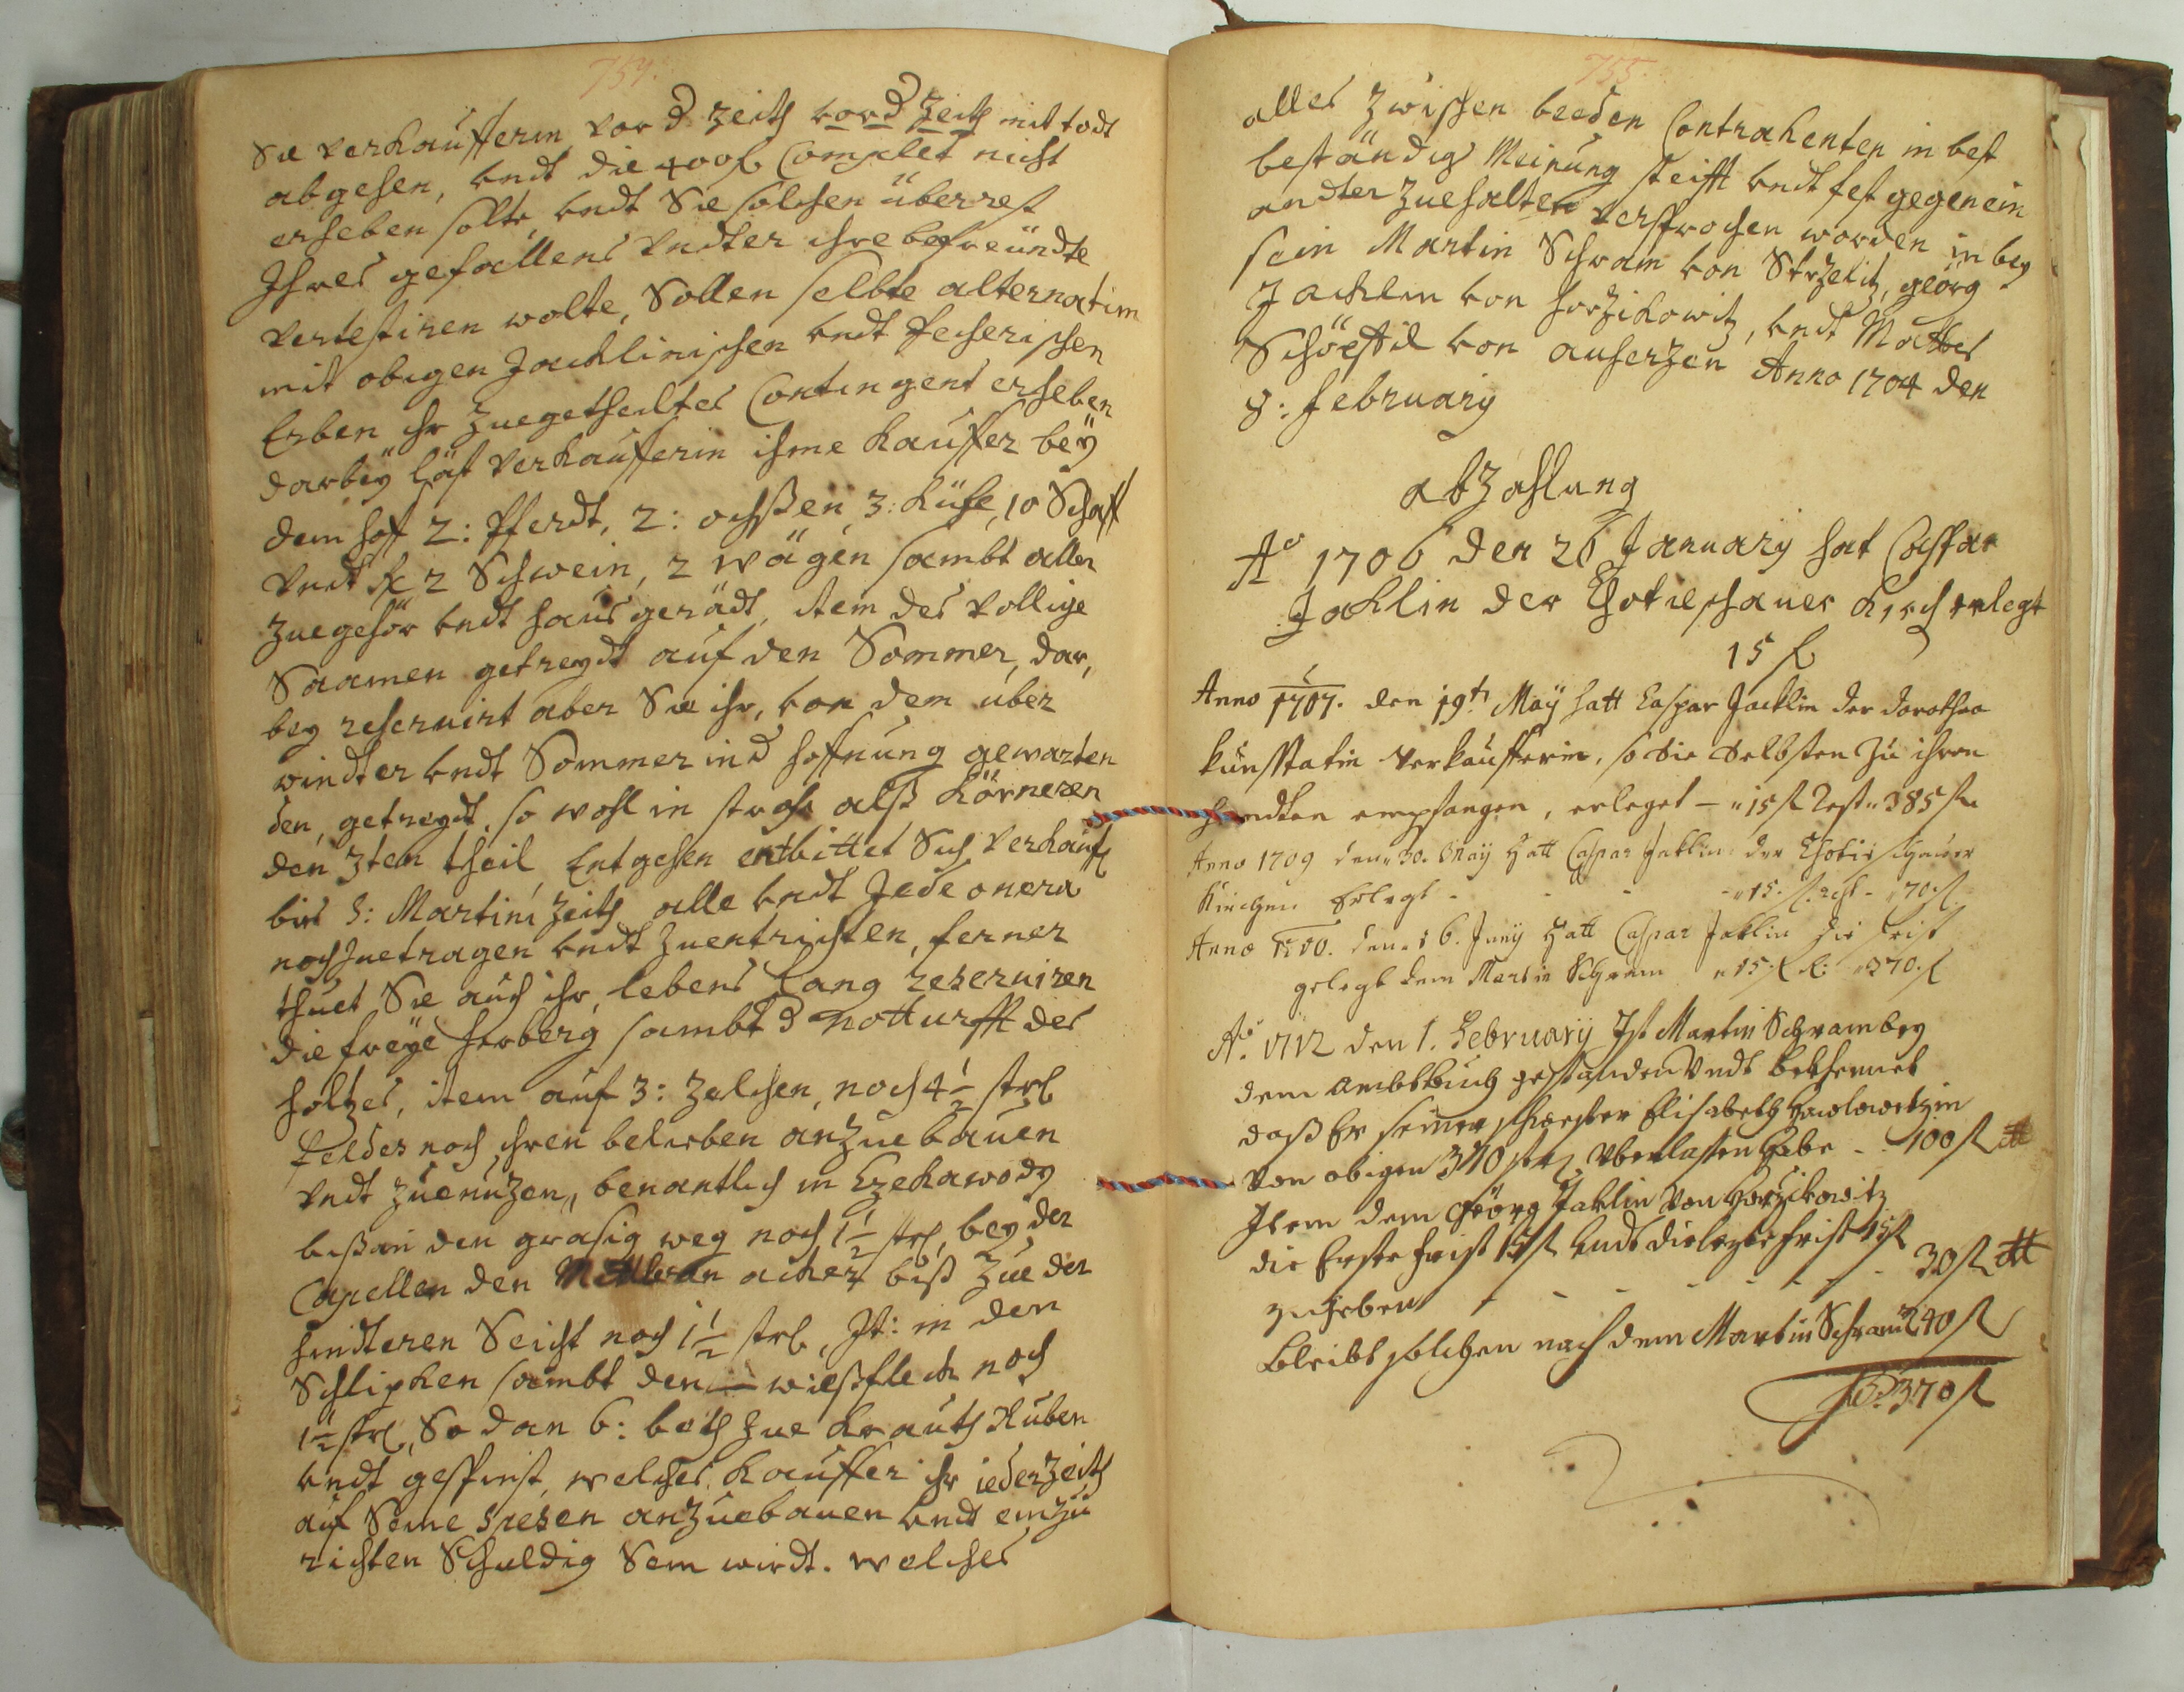 754.
Sie Verkaufferin, vor d Zeith vor d Zeith mit todt
abgehen, vndt die 400 fl Complet nicht
erheben solte, vndt Sie solchen überrest
Ihres gefallens vndter ihre befreündte
vertestiren wolte, Sollen selbte alternatim
mit obigen Jacklinischen vndt Pecherischen
Erben ihr zuegetheiltes Contingent erheben
darbeÿ läst Verkaufferin ihme Kauffer beÿ
dem hoff 2: Pferdt, 2: ochßen, 3: Kühe, 10 Schaff
vndt 2 Schwein, 2 wägen sambt aller
zuegehör vndt haus gerädt, item des vollige
Saamen getreydt auf den Sommer, dar,
bey reseruirt aber Sie ihr, von dem über
windter vndt Sommer in d hoffnung gewarten
den, getreydt, so wohl in stroh alß Körneren
den 3ten theil Entgehen erbittet Sich Verkauff
bis S: Martini Zeith alle vndt Jede onera
noch zuetragen vndt zuentrichten, ferner
thuet Sie auch ihr, lebens lang reseruiren
die freÿe herberg sambt d notturfft des
holtzes, item auf 3: zelchen, noch 4 1/2 strl
feldes noch ihren belieben anzuebauen
vndt zuenuzen, benantlich in Czekawody
bißan den grasig weg noch 1 1/2 strl, bey der
Capellen den acker biß zue der
hindteren Seicht noch 1 1/2 strl, It: in den
Schlipken sambt den wießfleck noch
1 1/2 strl, So dan 6: beth zue Krauth Ruben
vndt gespinst, welches Kauffer ihr iederzeith
auf Seine Spesen anzuebauen vndt einzu
richten Schuldig Sein wirdt. welches
755.
alles zwischen beeden Contrahenten in best
beständig Meinung steiff vndt fest gegen ein
andter zuehalten versprochen worden in bey
sein Martin Schram von Strzelitz, georg
Jacklin von horzikowitz, vndt Mattes
Schöpfil von auherzen Anno 1704 den
8: february
abzahlung
Ao 1706 den 26 January hat Caspar
Jacklin der Chotieschauer Kirch erlegt
15 fl
Anno 1707. den 19t May hatt Caspar Jacklin der dorothea
Kunstatin Verkaufferin, so die Selbsten zu ihren
handten empfangen, erleget — " 15 fl Rest " 385 fl
Anno 1709 den 30. May hatt Caspar Jaklin der Chotieschauer
Kirchen Erlegt - - - - " 15. fl. rest - " 70 fl.
Anno 1710. den 16. Juny hatt Caspar Jaklin die frist
gelegt dem Martin Schram " 15 fl R: " 370. fl
Ao. 1712 den 1. February Ist Martin Schram bey
dem Ambtbuch gestanden Vndt bekhennet
daß Er seiner schwester Elisabeth
von obigen 370 Vberlassen habe - - 100 fl
Item dem Georg Jaklin von Horzikowitz
die Erste frist 15 fl vndt die lezte frist 15 fl
zuheben - - - - - - 30 fl
bleibt solchen nach dem Martin Schram 240 fl
370 fl